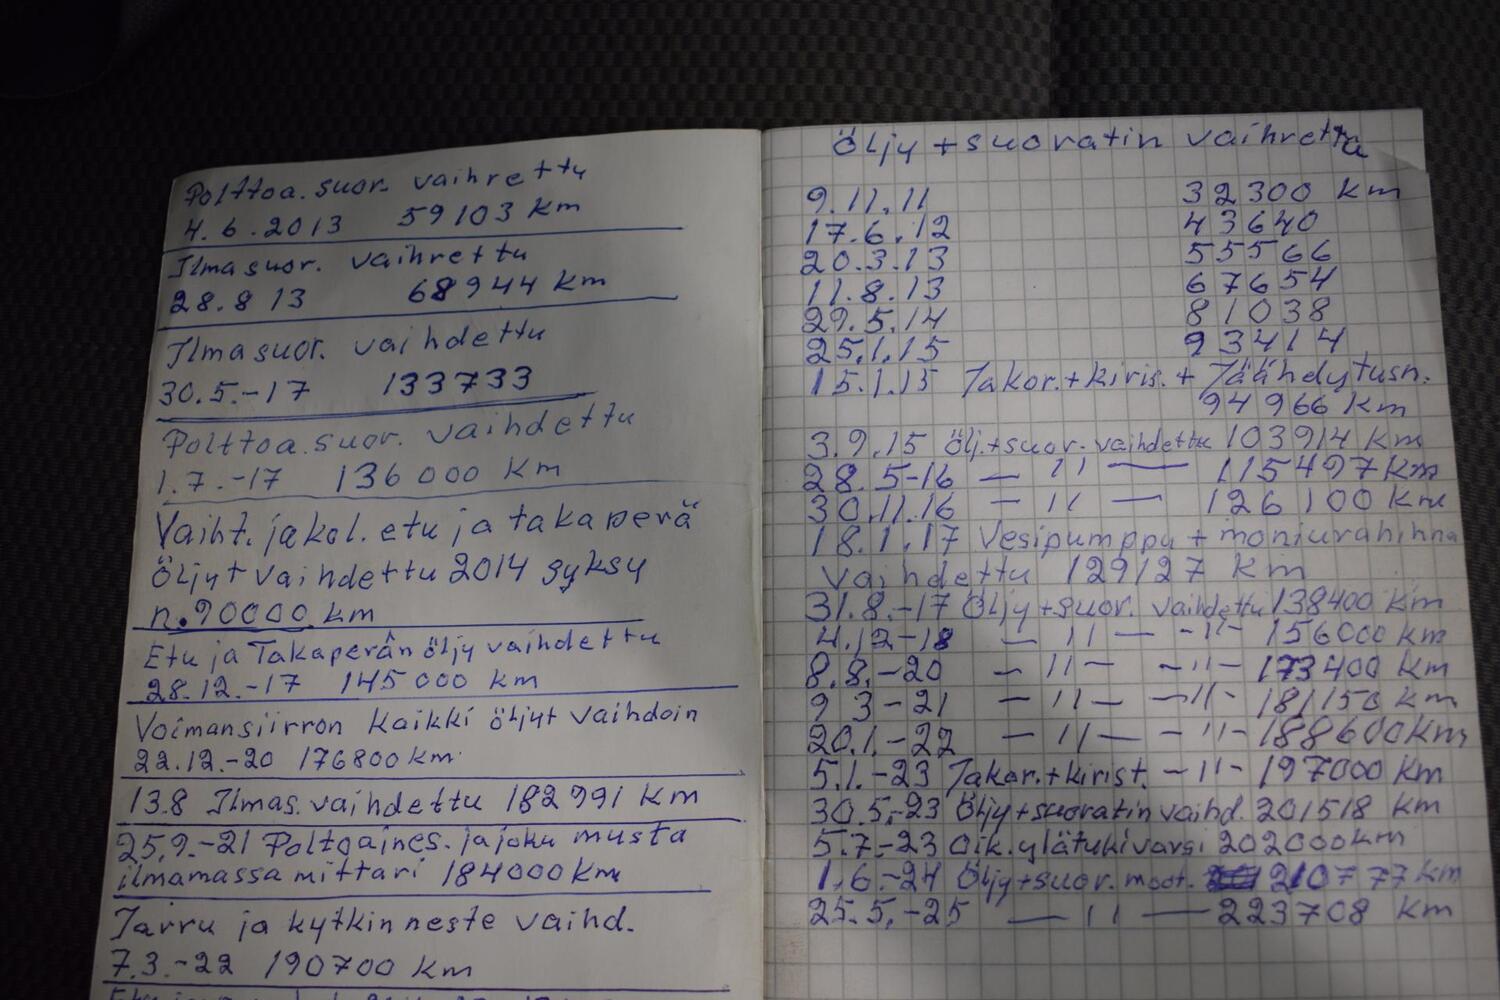 Polttoa.suor. vaihrettu
4.6.2013 59103 km
Ilmasuor. vaihrettu
28.8 13 68944 km
Ilmasuor. vaihdettu
30.5.-17 133733
Polttoa.suor. vaihdettu
1.7.-17 136000 km
Vaiht. jakol. etu ja takaperä
öljyt vaihdettu 2014 syksy
n.90000 km
Etu ja Takaperän öljy vaihdettu
28.12.-17 145000 km
Voimansiirron kaikki öljyt vaihdoin
22.12.-20 176800 km
13.8 Ilmas. vaihdettu 182991 km
25.9.-21 Poltoaines. ja joku musta
ilmamassa mittari 184000 km
Jarru ja kytkinneste vaihd.
7.3.-22 190700 km
Öljy + suoratin vaihrettu
9.11.11 32300 km
17.6.12 43640
20.3.13 55566
11.8.13 67654
29.5.14 81038
25.1.15 93414
15.1.15 Jakor.+kiris.+Jäähdytusn.
94966 km
3.9.15 Ölj+suor. vaihdettu 103914 km
28.5-16 — 11 — 115497 km
30.11.16 — 11 — 126100 km
18.1.17 Vesipumppu + moniurahihna
vaihdettu 129127 km
31.8.-17 Öljy+suor. vaihdettu 138400 km
4.12-18 — 11 — -11- 156000 km
8.8.-20 — 11 — -11- 173400 km
9 3-21 — 11 — -11- 181150 km
20.1.-22 — 11 — -11- 188600 km
5.1.-23 Jakor.+kirist. -11- 197000 km
30.5.-23 Öljy+suoratin vaihd. 201518 km
5.7.-23 Oik. ylätukivarsi 202000 km
1.6.-24 Öljy+suor. moot. 210777 km
25.5.-25 — 11 — 223708 km